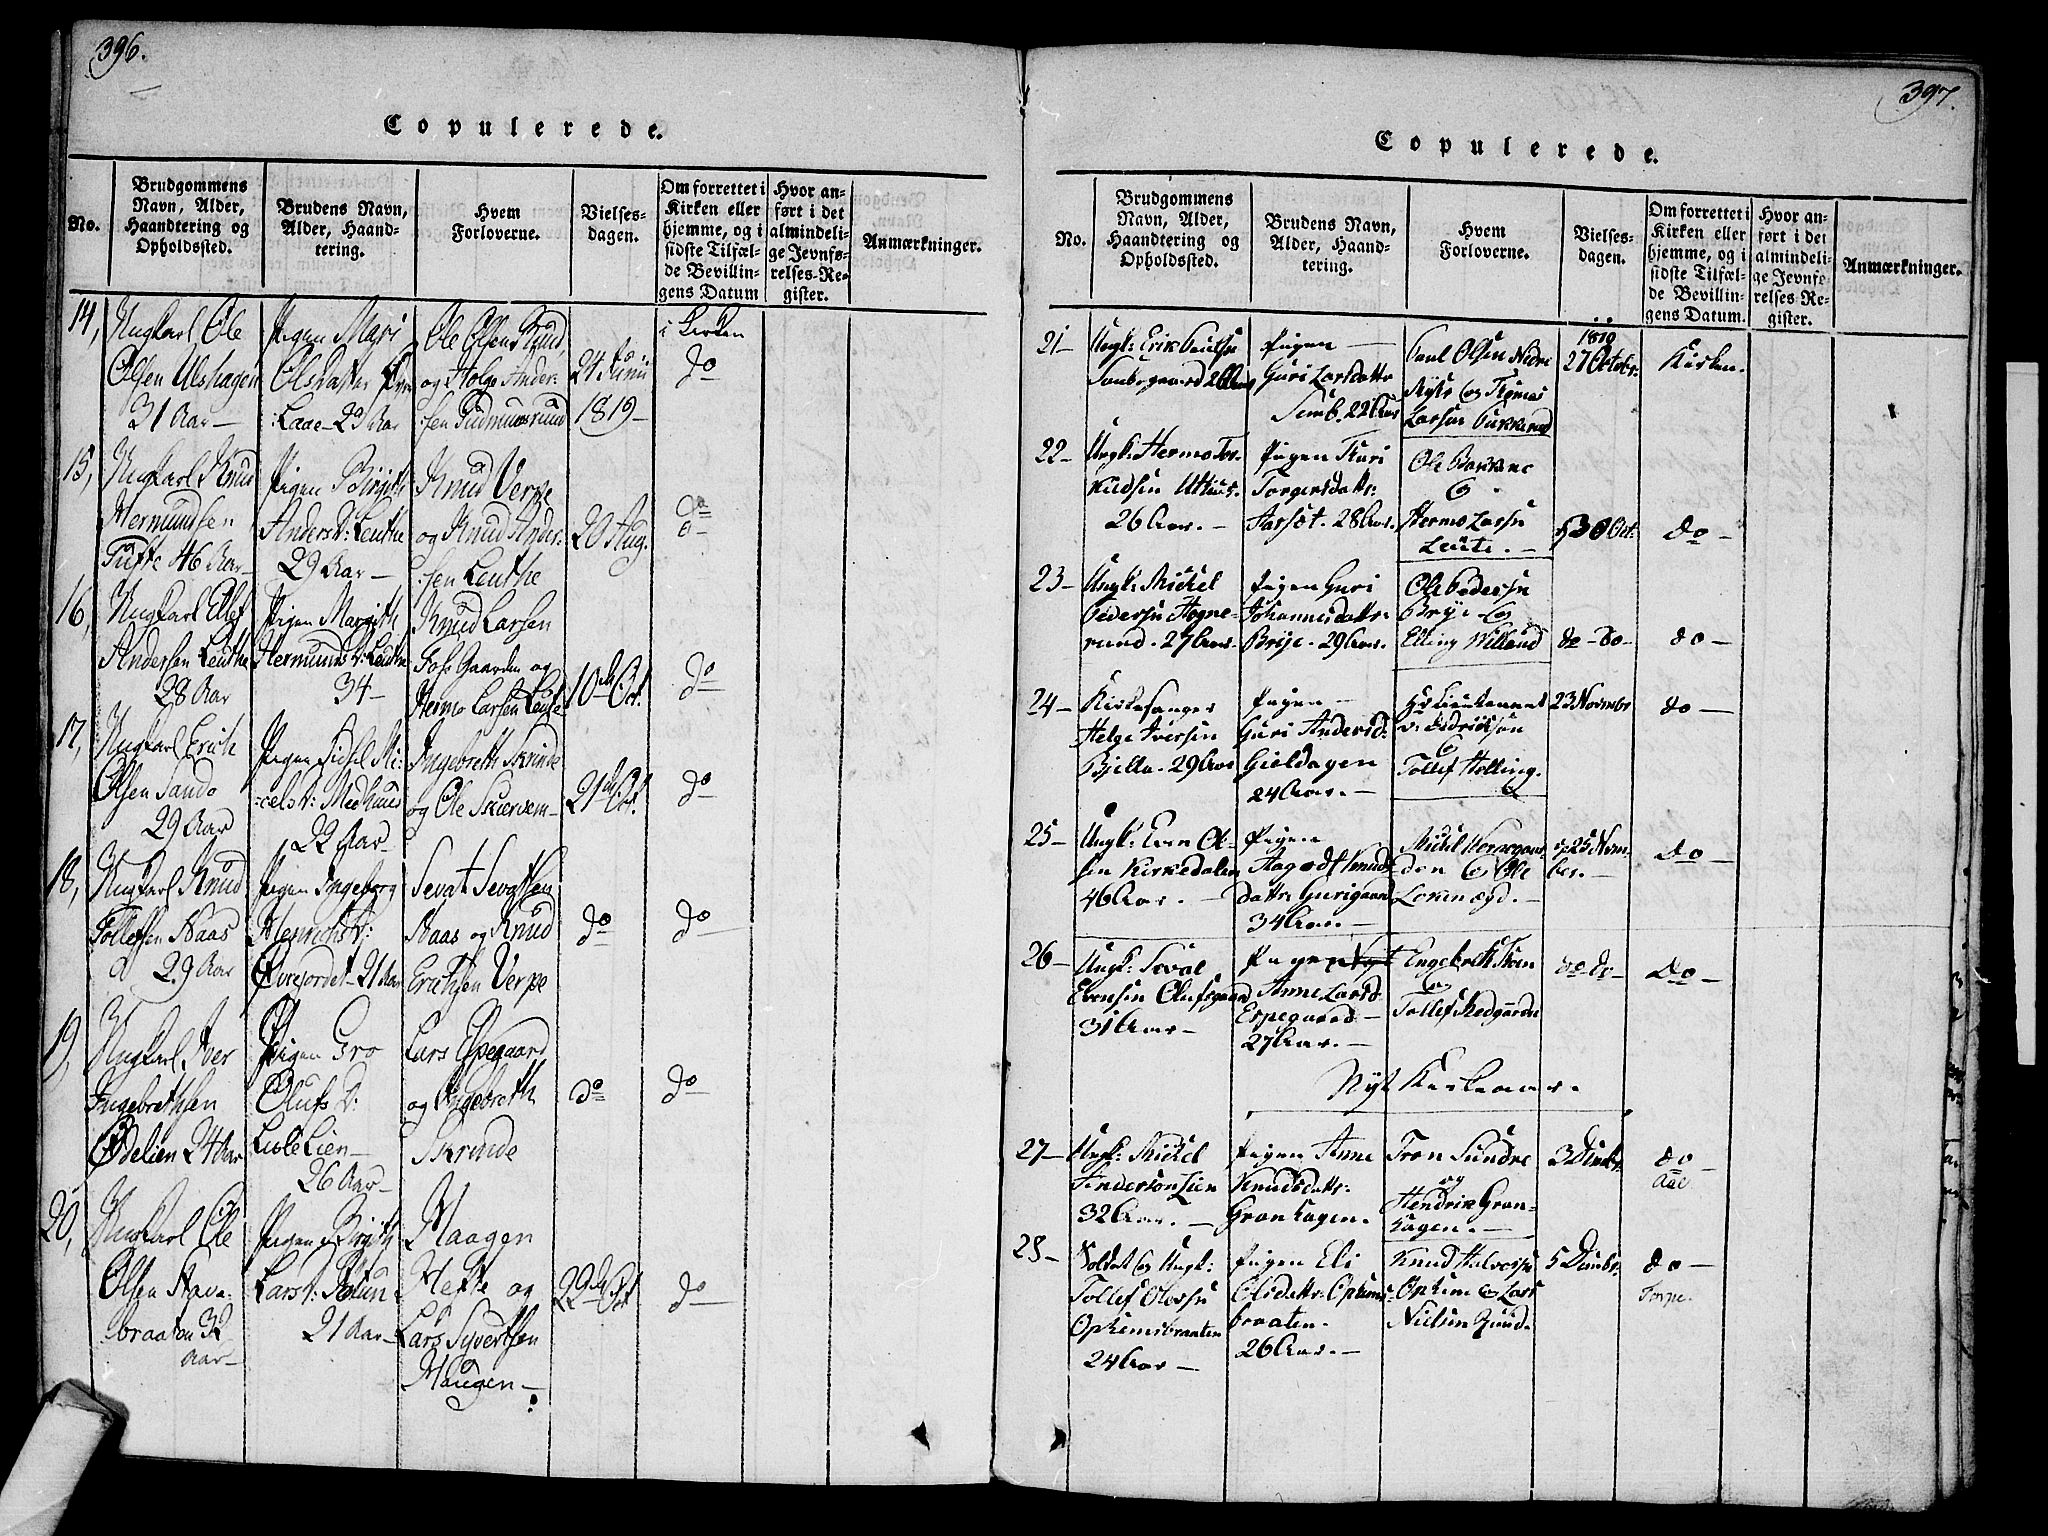 396.
Copulerede.
No.
Brudgommens
Navn, Alder,
Haandtering og
Opholdssted.
Brudens Navn,
Alder, Haand-
tering.
Hvem
Forloverne.
Vielses-
dagen.
Om forrettet i
Kirken eller
hjemme, og i
sidste Tilfæl-
de Bevillin-
gens Datum
Hvor an-
ført i det
almindeli-
ge Jevnfø-
relses-Re-
gister.
Anmærkninger.
14, Ungkarl Ole
Olsen Ulshagen
31 Aar —
Pigen Mari
Olsdatter
23 Aar
Ole Olsen Rud,
og Holge Ander-
sen Gudmunsrud
24 Junii
1819 —
i Kirken
do
15, Ungkarl Knud
Hermundsen
Tufte 46 Aar —
Pigen Birgith
Anders D: Leuthe
29 Aar —
Knud Verpe
og Knud Ander-
sen Leuthe
20 Aug.
do
16, Ungkarl Ellef
Andersen Leuthe
28 Aar
Pigen Margith
Hermunds D: Leuthe
34 —
Knud Larsen
Gaarden og
Hermo Larsen Leuthe
10de Oct.
do
17, Ungkarl Erich
Olsen Sando
29 Aar
Pigen Sidsel Mi-
cels D: Medhuus
22 Aar
Ingebreth Skrinde
og Ole Skiervem —
21de Oct.
do
18, Ungkarl Knud
Tollefsen Naas
29 Aar
Pigen Ingeborg
Henrichs D:
Øvrejordet — 21 Aar
Sevat Sevatsen
Naas og Knud
Erichsen Verpe
do
do
19, Ungkarl Iver
Ingebrethsen
Ødelien 24 Aar
Pigen Gro
Olufs D:
Lisle Lien —
26 Aar —
Lars Espegaard
og Ingebreth
Skrinde
do
do
20, Ungkarl Ole
Olsen Have-
braaten 32
Aar —
Pigen Birgith
Lars D:
21 Aar —
Haagen
Hefte og
Lars Syvertsen
Haugen —
22de Oct
do
397.
Copulerede.
No.
Brudgommens
Navn, Alder,
Haandtering og
Opholdssted.
Brudens Navn,
Alder, Haand-
tering.
Hvem
Forloverne.
Vielses-
dagen.
Om forrettet i
Kirken eller
hjemme, og i
sidste Tilfæl-
de Bevillin-
gens Datum.
Hvor an-
ført i det
almindeli-
ge Jevnfø-
relses-Re-
gister.
Anmærkninger.
21 — Ungk: Erik
Pigen —
Guri Larsdattr
22 Aar
Paul Olsen Nedre
og Thomas
Larsen
27 Octobr.
Kirken.
22 — Ungk: Hermo Tor-
26 Aar. —
Pigen Turi
Torgersdattr:
Aarset. 28 Aar.
Ole
&
Hermo Larsen
Leute. —
30 Oct.
do —
23 — Ungk: Mickel
Pedersen Hogne-
rund. 27 Aar.
Pigen Guri
Johannesdattr.
Brije. 29 Aar.
Ole Pedersen
Brye &
Elling Villand
do — do —
do —
24 — Kirkesanger
Helge Iversen
Bjella. 29 Aar
Pigen —
Guri Andersd:
Gieldagen
24 Aar. —
Hr Lieutenant
&
Tollef Helling.
23 Novembr
do —
25 — Ungk: Even Ol-
sen Kirkedalen
46 Aar. —
Pigen
Aagodt Knuds-
dattr Gurigaard
34 Aar. —
den & Ole
25 Novem-
ber. —
do —
26 — Ungk: Seval
Evensen Olufsgaard
31 Aar —
Pigen
Anne Larsd.
Espegaard —
27 Aar. —
Engebreth
&
Tollef
do do —
do —
Nyt Kirkeaar.
27 — Ungk: Mickel
Anderson Lien
32 Aar. —
Pigen Anne
Knudsdattr:
Gronhagen.
Tron Sundre
og
Hendrik Gron-
hagen. —
3 Decembr.
do —
Aal
28 — Soldat & Ungk:
Tollef Olersen
Ophemsbraaten
24 Aar —
Pigen Eli
Olsdattr: Ophems-
braaten.
26 Aar. —
Knud Halvorsen
Ophem & Lars
Nielsen Ruud.
5 Decembr.
do —
Torpe.